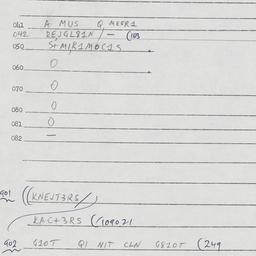 041 A MUS Q MEER1
042 REJGL81N / — (103
050 S+MIR1MOC1S
060 0
070 0
080 0
081 0
082 —
901 ((KNEJT3RS/)
KAC+3RS (/1090.21
902 G10T Q1 NIT CLN G810T (249